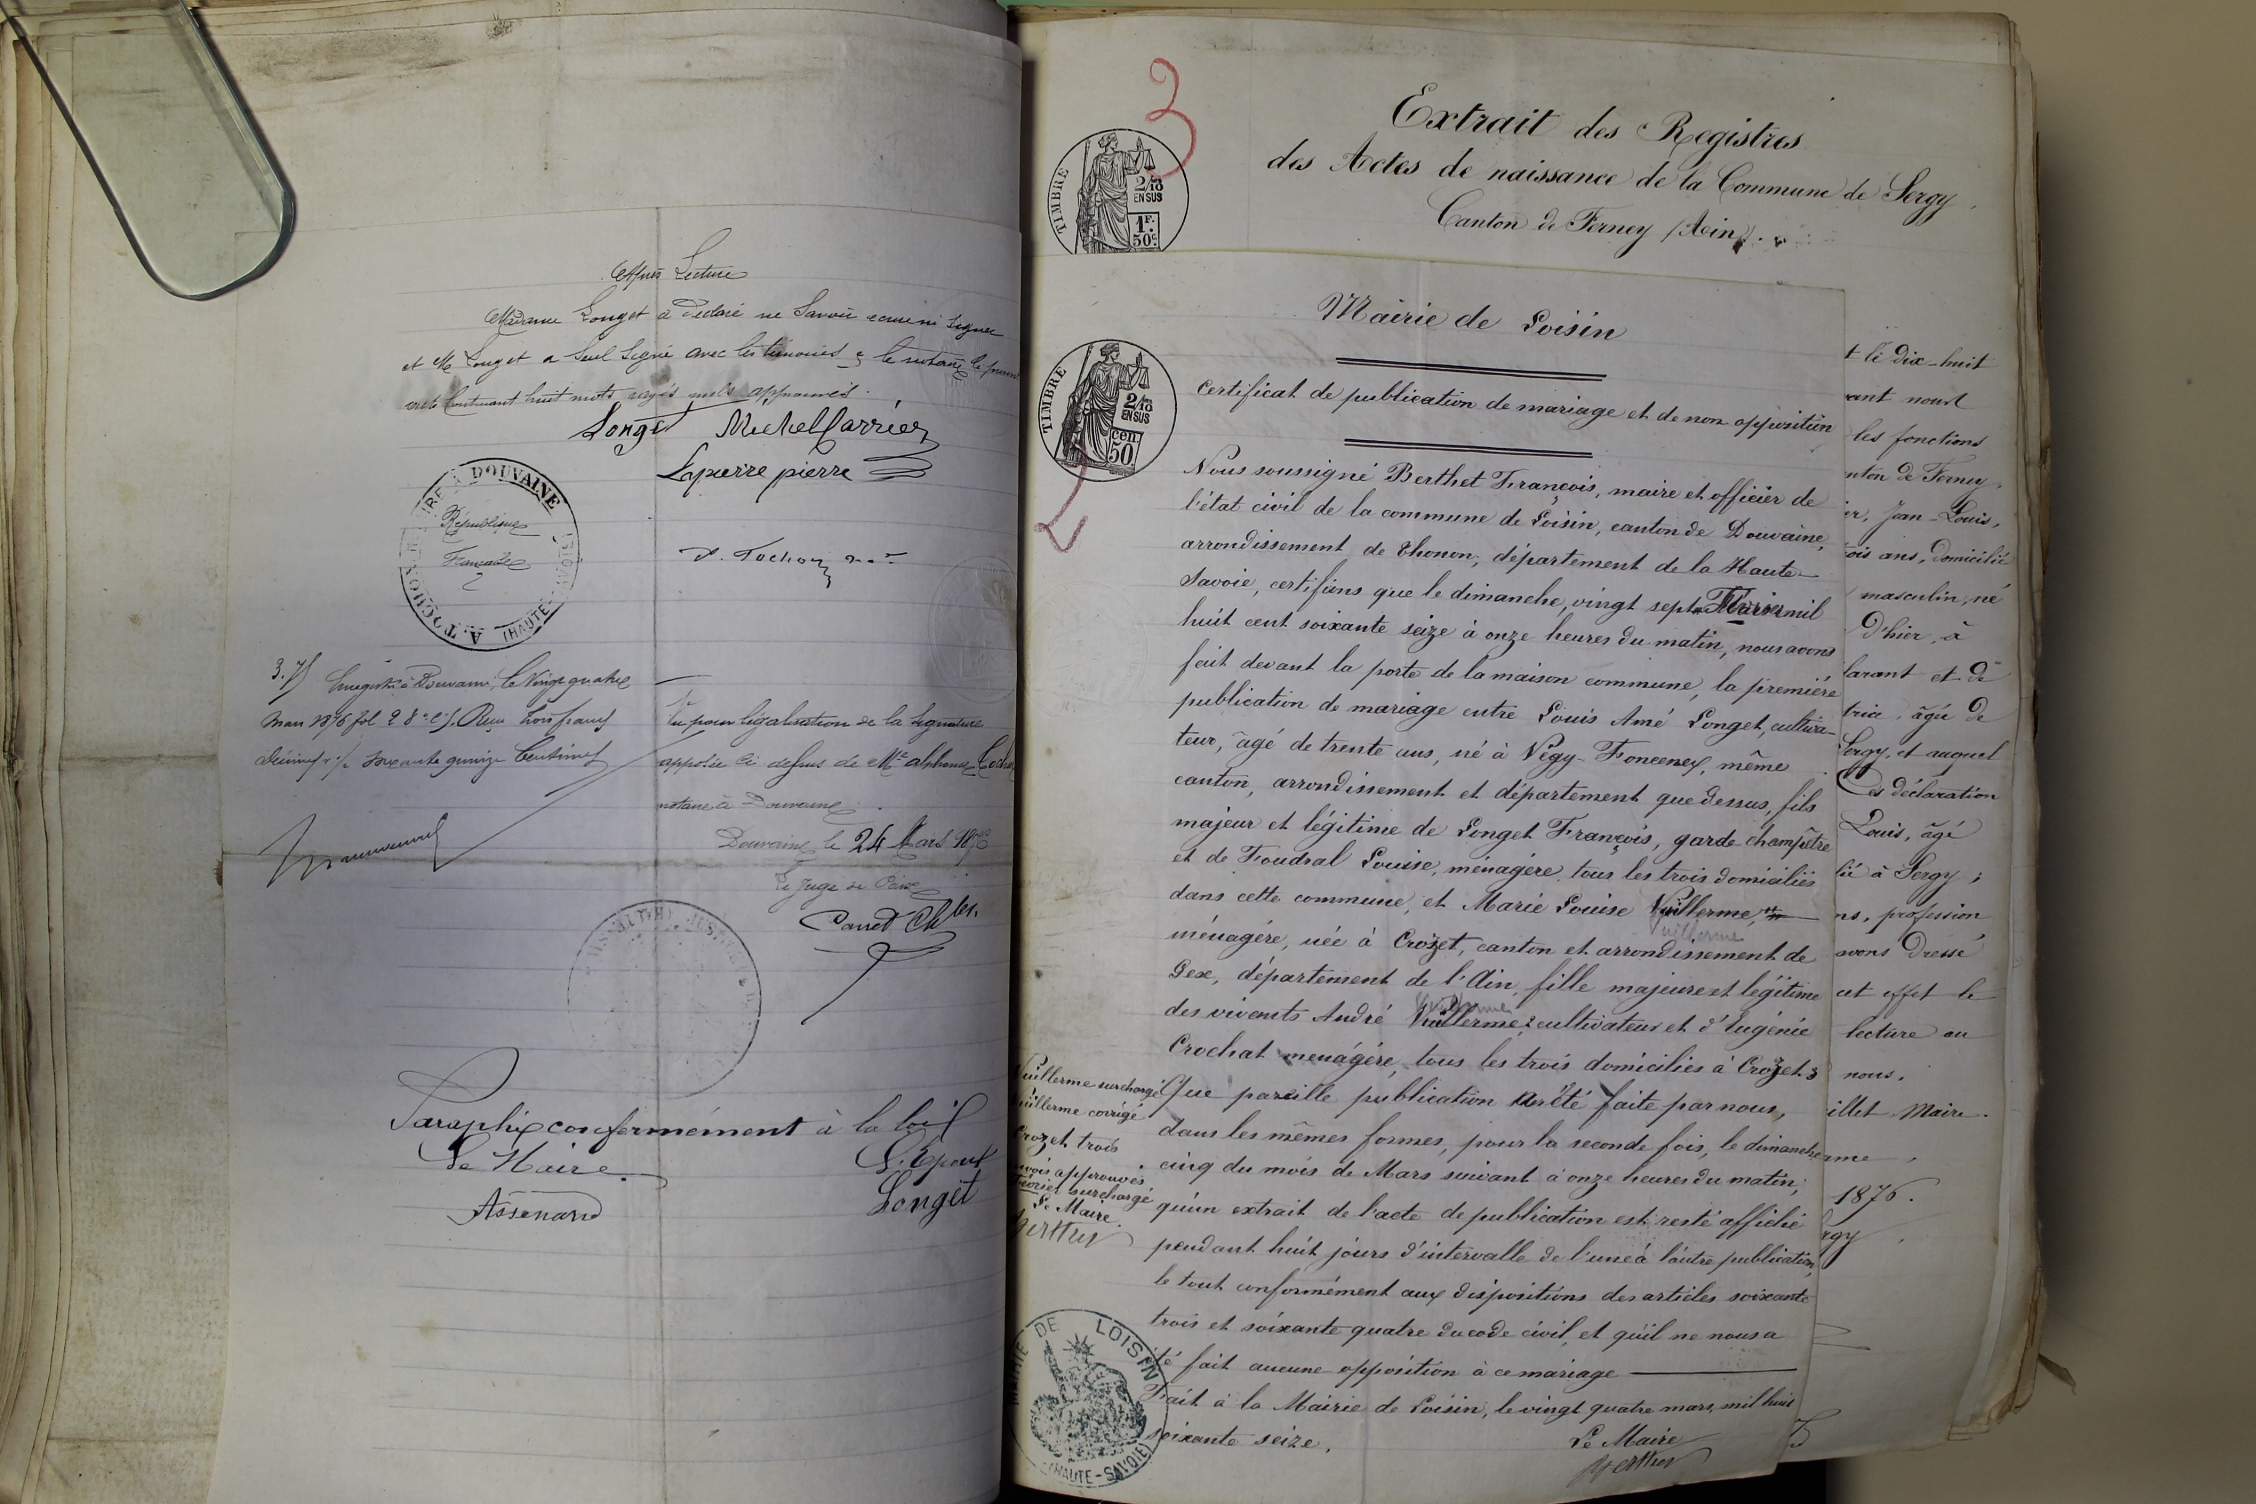 Après Lecture
Madame Longet a déclaré ne Savoir écrire ni Signer
et M Longet a Seul Signé avec les témoins & le notaire le présent
acte Contenant huit mots rayés nuls approuvés.
Longet Michel Carrier
Lapierre pierre
A. Tochon nre
DOUVAINE
République
Française
A. TOCHON
(HAUTE
3.75 Enregistré à Douvaine, le Vingt quatre
Mars 1876 fol 2 8e c 5. Reçu trois francs
décimes soixante quinze Centimes
Vu pour légalisation de la Signature
apposée Ci dessus de Me alphonse Tochon
notaire à Douvaine
Douvaine le 24 Mars 1876
Le Juge de Paix
Paraphé conformément à la loi
Le Maire
L'Epoux
Assenard
Longet
3
Extrait des Registres
des Actes de naissance de la Commune de Sergy
Canton de Ferney (Ain).
TIMBRE
2/10
EN SUS
1F.
50c.
Mairie de Loisin
TIMBRE
2/10
EN SUS
cen
50
2
Certificat de publication de mariage et de non opposition
Nous soussigné Berthet François, maire et officier de
l'état civil de la commune de Loisin, canton de Douvaine,
arrondissement de Thonon, département de la Haute-
Savoie, certifions que le dimanche, vingt sept Février mil
huit cent soixante seize à onze heures du matin, nous avons
fait devant la porte de la maison commune, la première
publication de mariage entre Louis Amé Longet, cultiva-
teur, âgé de trente ans, né à Végy-Foncenex, même
canton, arrondissement et département que dessus, fils
majeur et légitime de Longet François, garde-champêtre
et de Foudral Louise, ménagère, tous les trois domiciliés
dans cette commune, et Marie Louise Vuillerme,
Vuillerme
ménagère, née à Crozet, canton et arrondissement de
Gex, département de l'Ain, fille majeure et légitime
Vuillerme
des vivants André Vuillerme, cultivateur et d'Eugénie
Crochat ménagère, tous les trois domiciliés à Crozet;
Que pareille publication a été faite par nous,
dans les mêmes formes, pour la seconde fois, le dimanche
cinq du mois de Mars suivant à onze heures du matin,
qu'un extrait de l'acte de publication est resté affiché
pendant huit jours d'intervalle de l'une à l'autre publication,
le tout conformément aux dispositions des articles soixante
trois et soixante quatre du code civil, et qu'il ne nous a
été fait aucune opposition à ce mariage
Fait à la Mairie de Loisin, le vingt quatre mars, mil huit
soixante seize.
Le Maire
Berthet
Vuillerme surchargé
Vuillerme corrigé
Crozet trois
mois approuvés
Février surchargé
Le Maire
Berthet
MAIRIE DE LOISIN
(HAUTE-SAVOIE)
t le dix-huit
vant nous
les fonctions
nton de Ferney,
er, Jean-Louis,
ois ans, domicilié
masculin, né
d'hier, à
larant et de
trice, âgée de
Sergy, et auquel
Ces déclaration
Louis, âgé
lié à Sergy;
ns, profession
avons dressé
cet effet le
lecture au
nous.
illet Maire.
rme
1876.
rgy